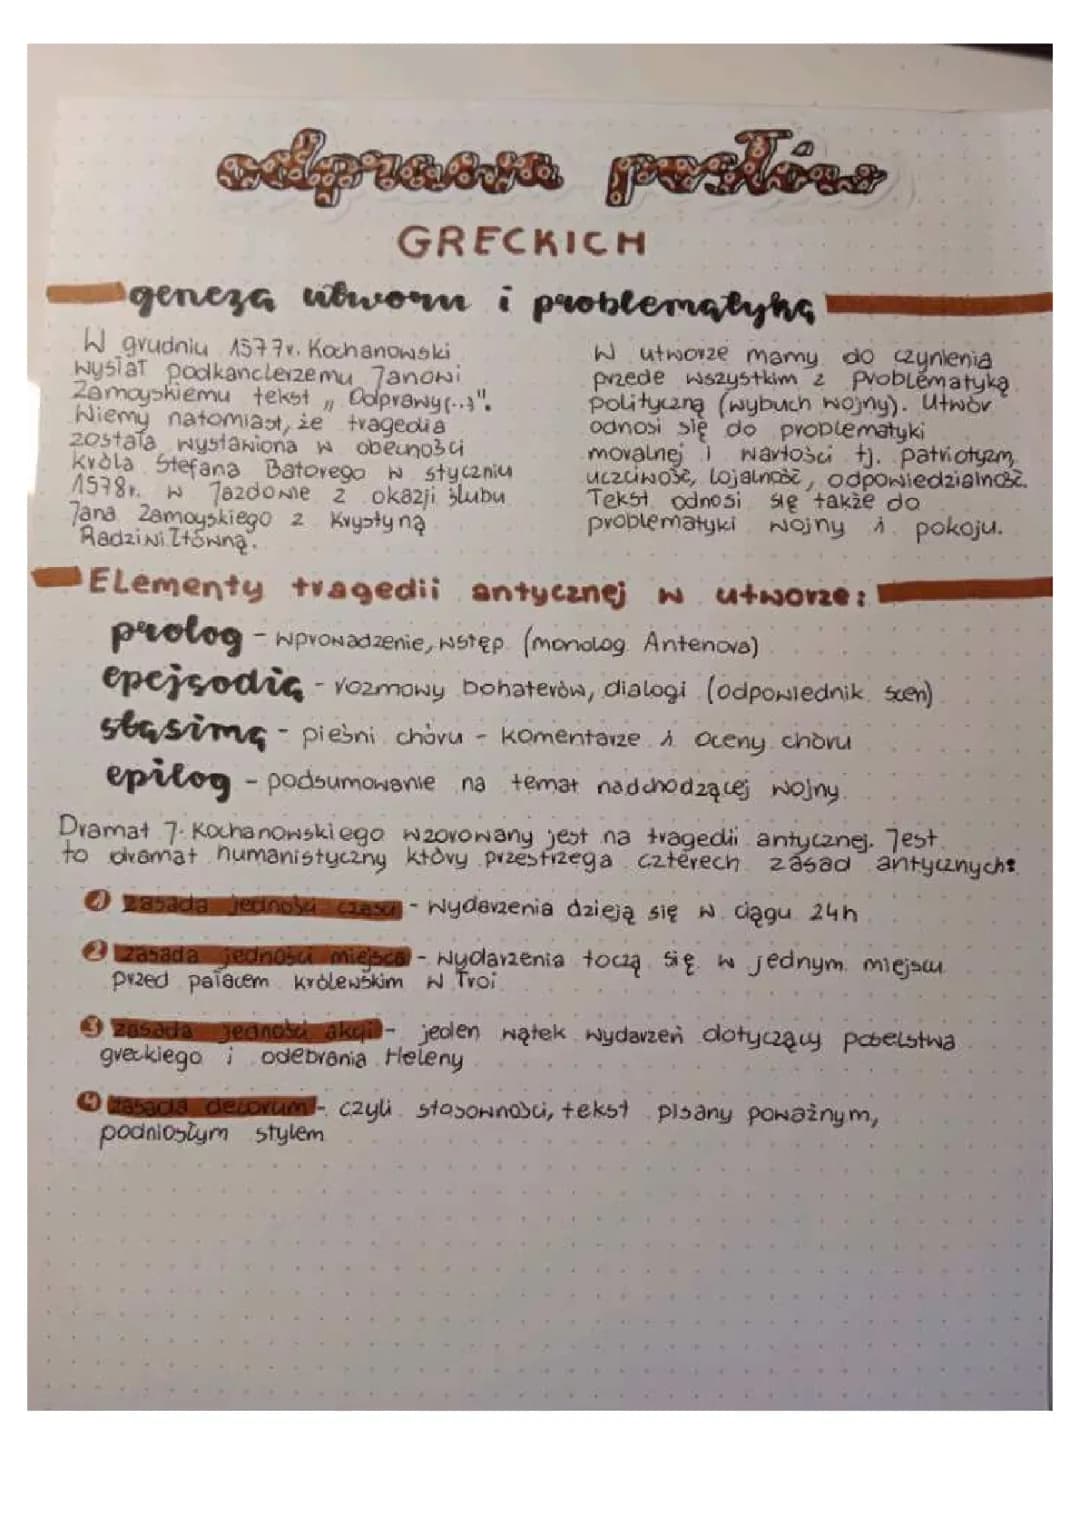 odprawa posłów
GRECKICH
geneza utworu i problematyka
W grudniu 1577r. Kochanowski
wysłał podkanclerzemu Janowi
Zamoyskiemu tekst „Odprawy(...)".
Wiemy natomiast, że tragedia
została wystawiona w obecności
króla Stefana Batorego w styczniu
1578r. w Jazdowie z okazji ślubu
Jana Zamoyskiego z Krystyną
Radziwiłłówną.
W utworze mamy do czynienia
przede wszystkim z problematyką
polityczną (wybuch wojny). Utwór
odnosi się do problematyki
moralnej i wartości tj. patriotyzm,
uczciwość, lojalność, odpowiedzialność.
Tekst odnosi się także do
problematyki wojny i pokoju.
Elementy tragedii antycznej w utworze:
prolog - wprowadzenie, wstęp (monolog Antenora)
epejsodia - rozmowy bohaterów, dialogi (odpowiednik scen)
stasima - pieśni chóru - komentarze i oceny chóru
epilog - podsumowanie na temat nadchodzącej wojny
Dramat J. Kochanowskiego wzorowany jest na tragedii antycznej. Jest
to dramat humanistyczny który przestrzega czterech zasad antycznych:
1 zasada jedności czasu - wydarzenia dzieją się w ciągu 24h
2 zasada jedności miejsca - wydarzenia toczą się w jednym miejscu
przed pałacem królewskim w Troi
3 zasada jedności akcji - jeden wątek wydarzeń dotyczący poselstwa
greckiego i odebrania Heleny
4 zasada decorum - czyli stosowności, tekst pisany poważnym,
podniosłym stylem